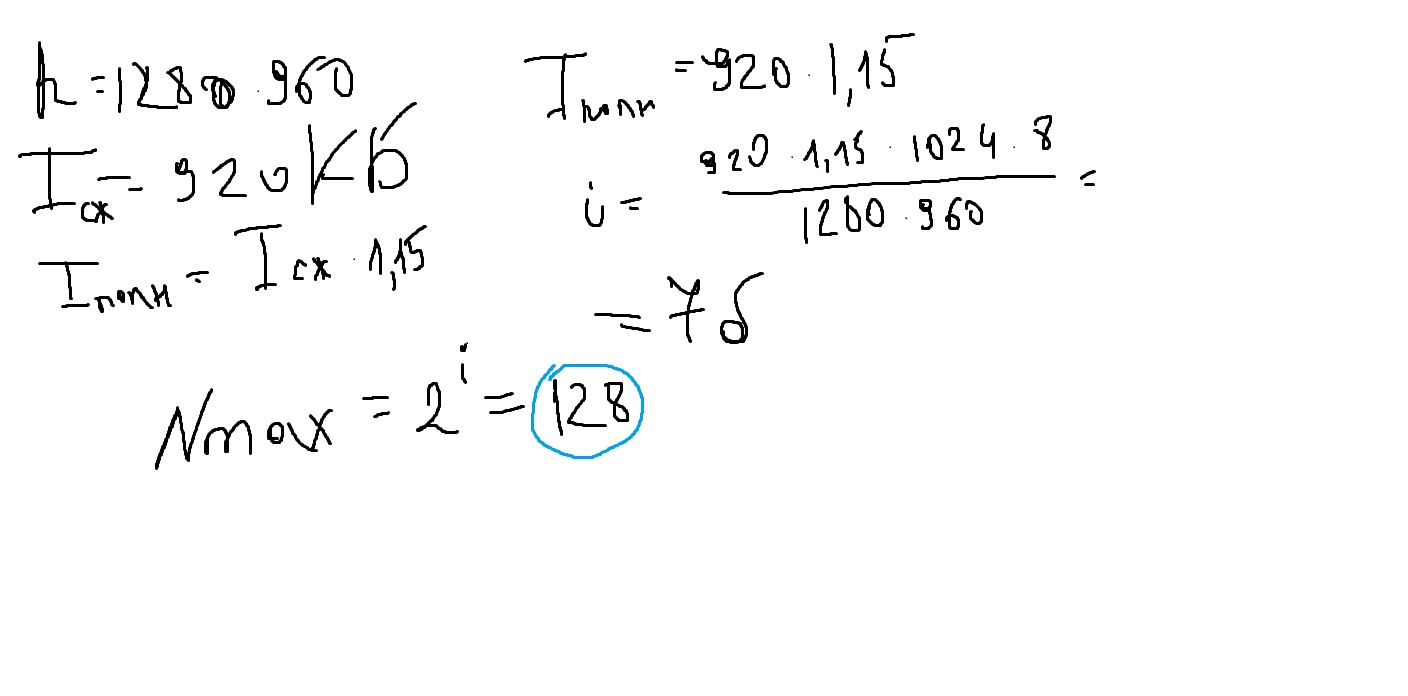 h = 1280 · 960
Iсж = 920 Кб
Iполн = Iсж · 1,15
Iполн = 920 · 1,15
i = 920 · 1,15 · 1024 · 8 / 1280 · 960 =
= 7 б
Nmax = 2^i = 128